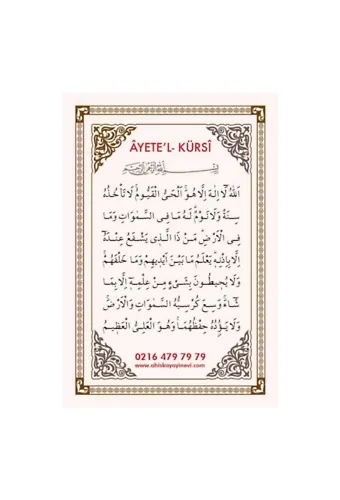 ÂYETE'L- KÜRSÎ
بِسْمِ اللّٰهِ الرَّحْمٰنِ الرَّحِيمِ
اَللّٰهُ لَٓا اِلٰهَ اِلَّا هُوَۚ اَلْحَيُّ الْقَيُّومُۚ لَا تَأْخُذُهُ
سِنَةٌ وَلَا نَوْمٌۜ لَهُ مَا فِي السَّمٰوَاتِ وَمَا
فِي الْاَرْضِۜ مَنْ ذَا الَّذِي يَشْفَعُ عِنْدَهُٓ
اِلَّا بِاِذْنِه۪ۜ يَعْلَمُ مَا بَيْنَ اَيْدِيهِمْ وَمَا خَلْفَهُمْۚ
وَلَا يُحِيطُونَ بِشَيْءٍ مِنْ عِلْمِه۪ٓ اِلَّا بِمَا
شَٓاءَۚ وَسِعَ كُرْسِيُّهُ السَّمٰوَاتِ وَالْاَرْضَۚ
وَلَا يَؤُ۫دُهُ حِفْظُهُمَاۚ وَهُوَ الْعَلِيُّ الْعَظِيمُ
0216 479 79 79
www.ahiskayayinevi.com